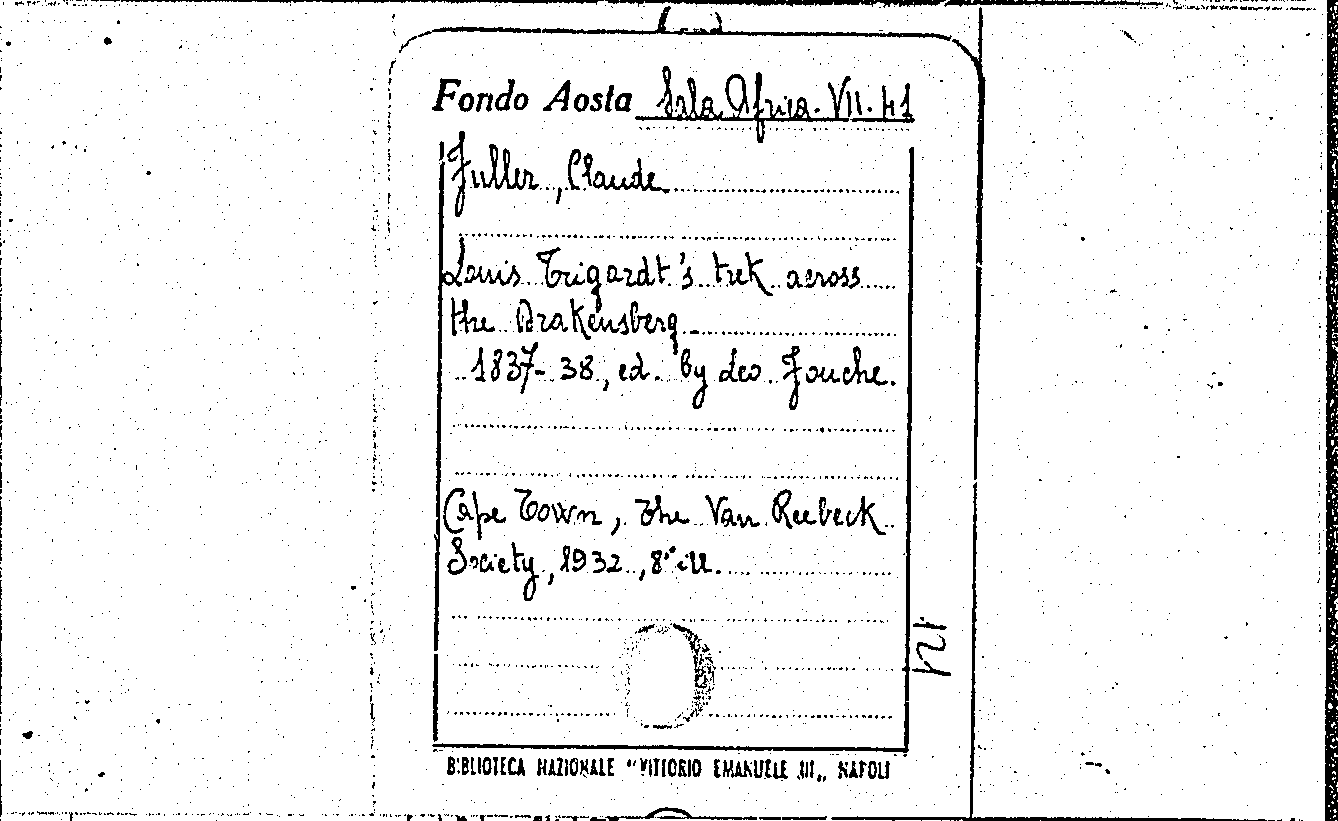 Fondo Aosta Sala Africa. VII. 41
Fuller, Claude
Louis Trigardt's trek across
the Drakensberg
1837-38, ed. by Leo Fouche.
Cape Town, The Van Reebeck
Society, 1932, 8° ill.
BIBLIOTECA NAZIONALE "VITTORIO EMANUELE III„ NAPOLI